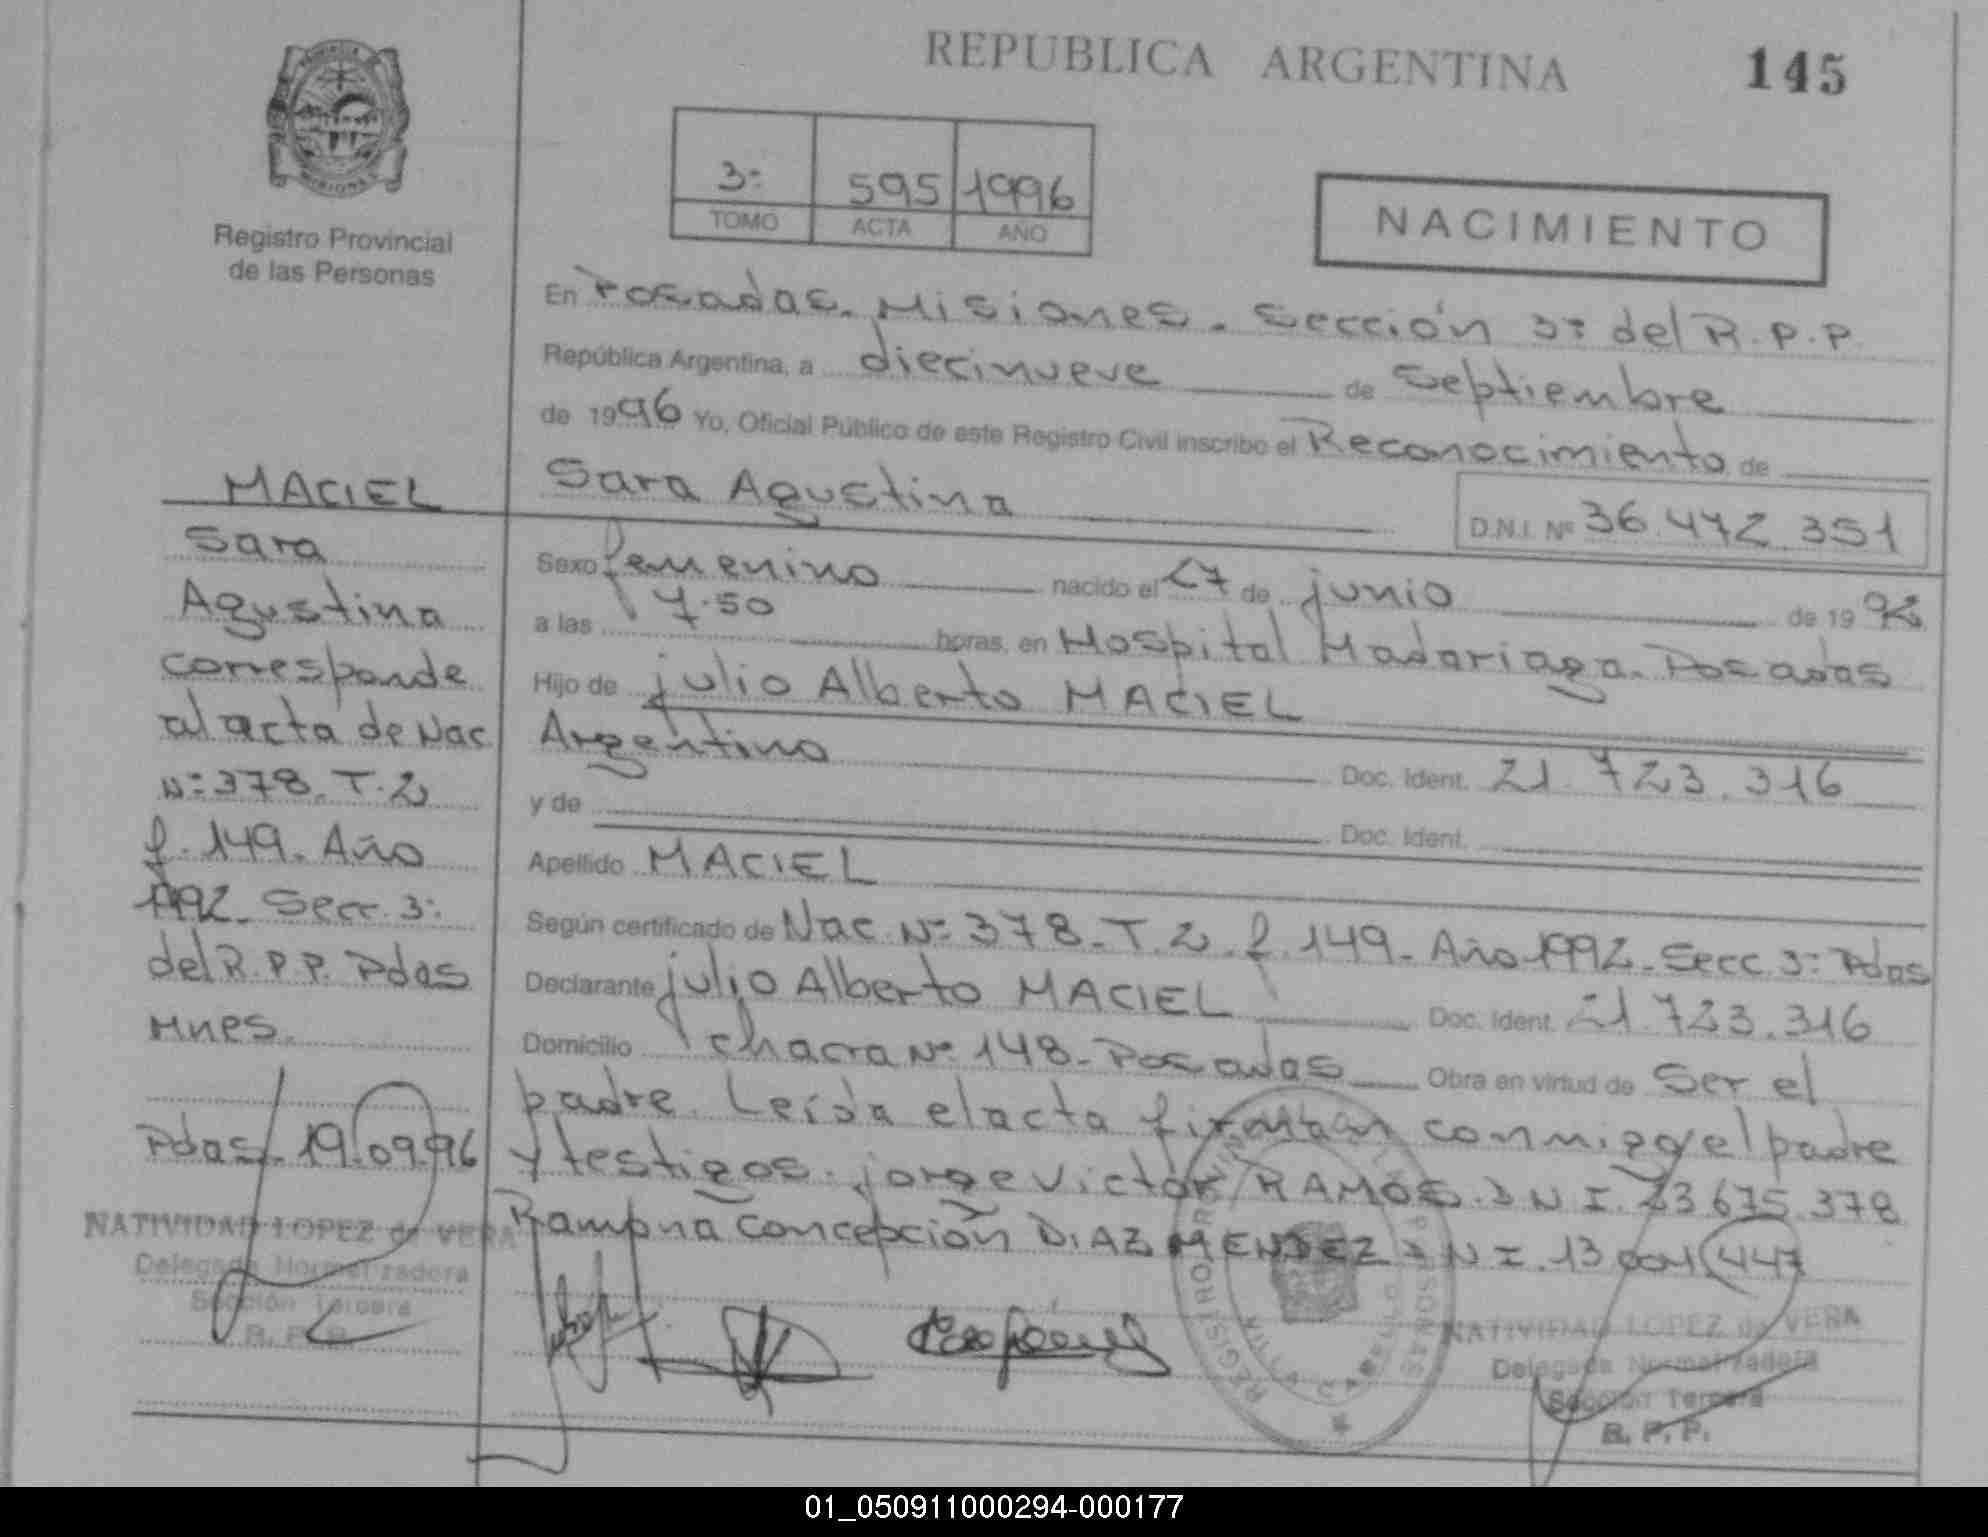 REPUBLICA ARGENTINA
145
PROVINCIA
MISIONES
Registro Provincial
de las Personas
3º 595 1996
TOMO ACTA AÑO
NACIMIENTO
En Posadas. Misiones. Sección 3º del R.P.P.
República Argentina, a diecinueve de Septiembre
de 1996 Yo, Oficial Público de este Registro Civil inscribo el Reconocimiento de
Sara Agustina
D.N.I. Nº 36.472.351
Sexo femenino nacido el 27 de junio de 1992
a las 7.50 horas, en Hospital Madariaga. Posadas
Hijo de julio Alberto MACIEL
Argentino Doc. Ident. 21.723.316
y de Doc. Ident.
Apellido MACIEL
Según certificado de Nac. Nº 378. T. 2. f. 149. Año 1992. Secc. 3º Pdas
Declarante julio Alberto MACIEL Doc. Ident. 21.723.316
Domicilio chacra Nº 148. Posadas Obra en virtud de Ser el
padre. Leída el acta firman conmigo el padre
y testigos. jorge victor RAMOS. D N I. 23.675.378
Ramona Concepción DIAZ MENDEZ D N I. 13.001.447
MACIEL
Sara
Agustina
corresponde
al acta de Nac
Nº 378. T. 2
f. 149. Año
1992. Secc. 3º
del R.P.P. Pdas
Mnes.
Pdas. 19.09.96
NATIVIDAD LOPEZ de VERA
Delegada Normalizadora
Sección Tercera
R. P. P.
NATIVIDAD LOPEZ de VERA
Delegada Normalizadora
Sección Tercera
R. P. P.
01_050911000294-000177